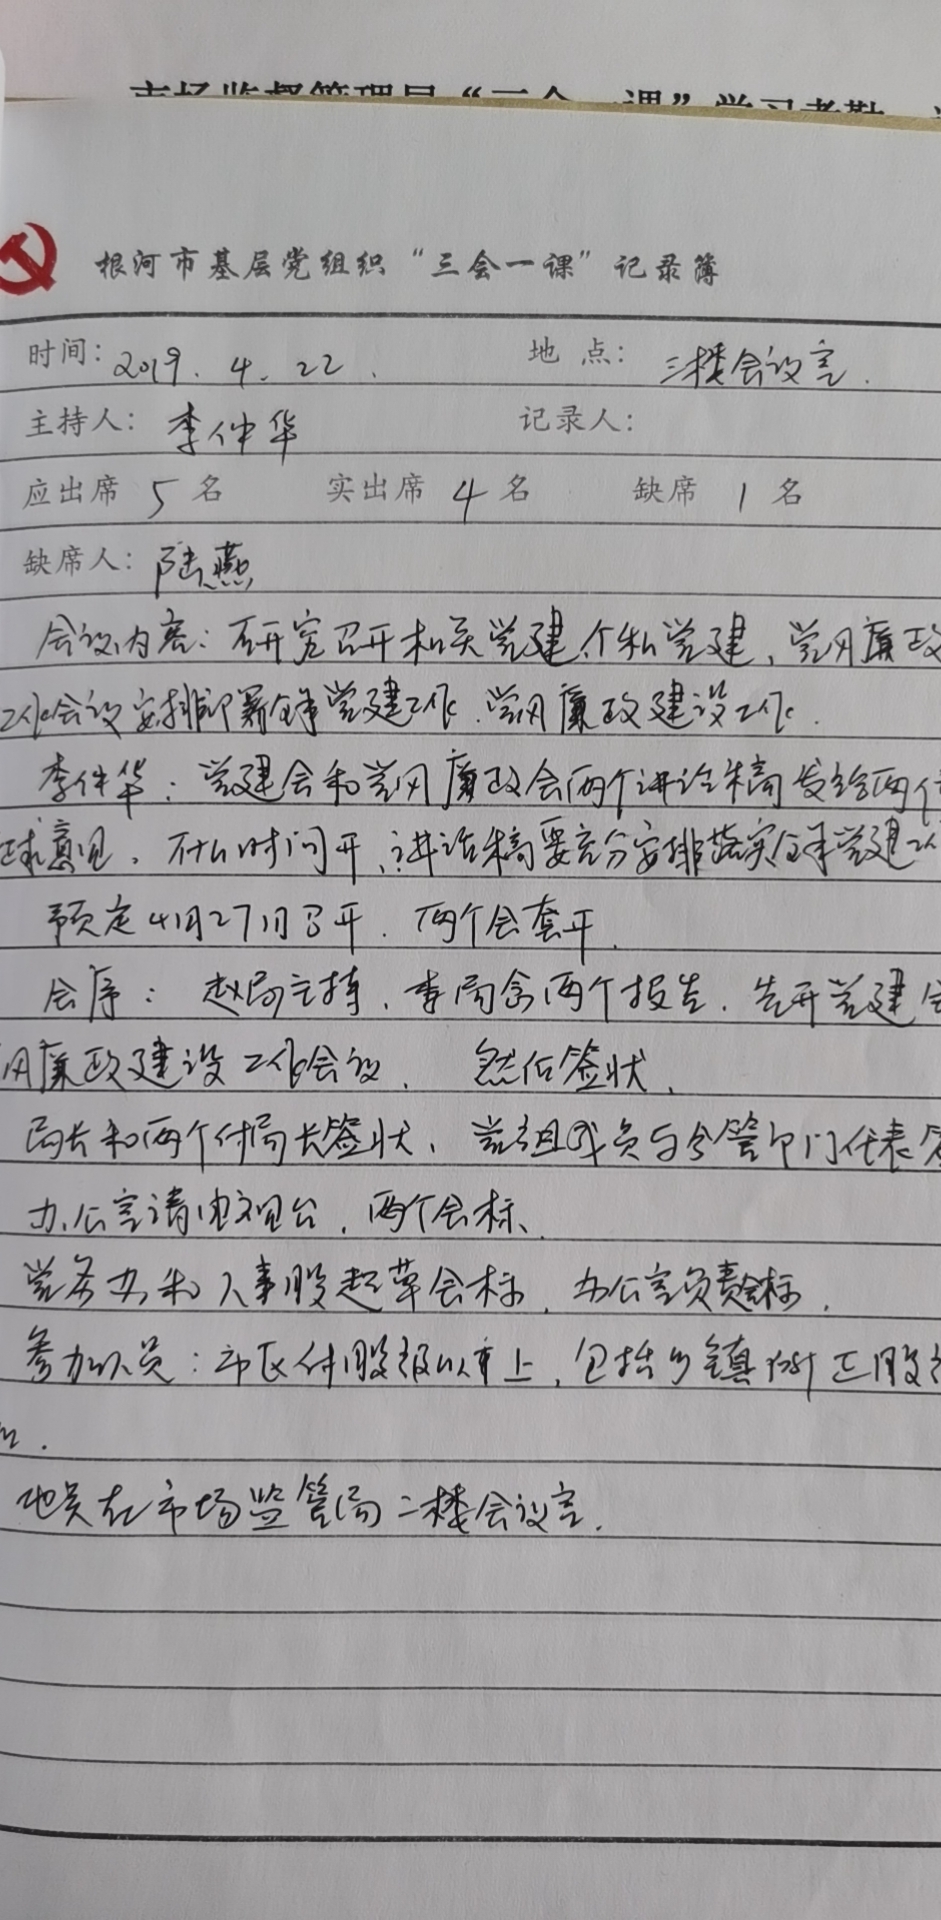 市场监督管理局“三会一课”学习考勤
根河市基层党组织“三会一课”记录簿
时间：2019.4.22. 地点：三楼会议室.
主持人：李仲华 记录人：
应出席5名 实出席4名 缺席1名
缺席人：陆燕
会议内容：研究召开机关党建、个私党建、党风廉政
工作会议安排部署全年党建工作、党风廉政建设工作.
李仲华：党建会和党风廉政会两个讲话稿发给两位
征求意见、什么时间开、讲话稿要充分安排落实全年党建工作
预定4月27日召开. 两个会套开.
会序：赵局主持、李局念两个报告. 先开党建会
风廉政建设工作会议、然后签状、
局长和两个付局长签状、党组成员与分管部门代表签
办公室请电视台、两个会标、
党务办和人事股起草会标、办公室负责会标.
参加人员：市区付股级以上、包括乡镇所正股
地点在市场监管局二楼会议室.